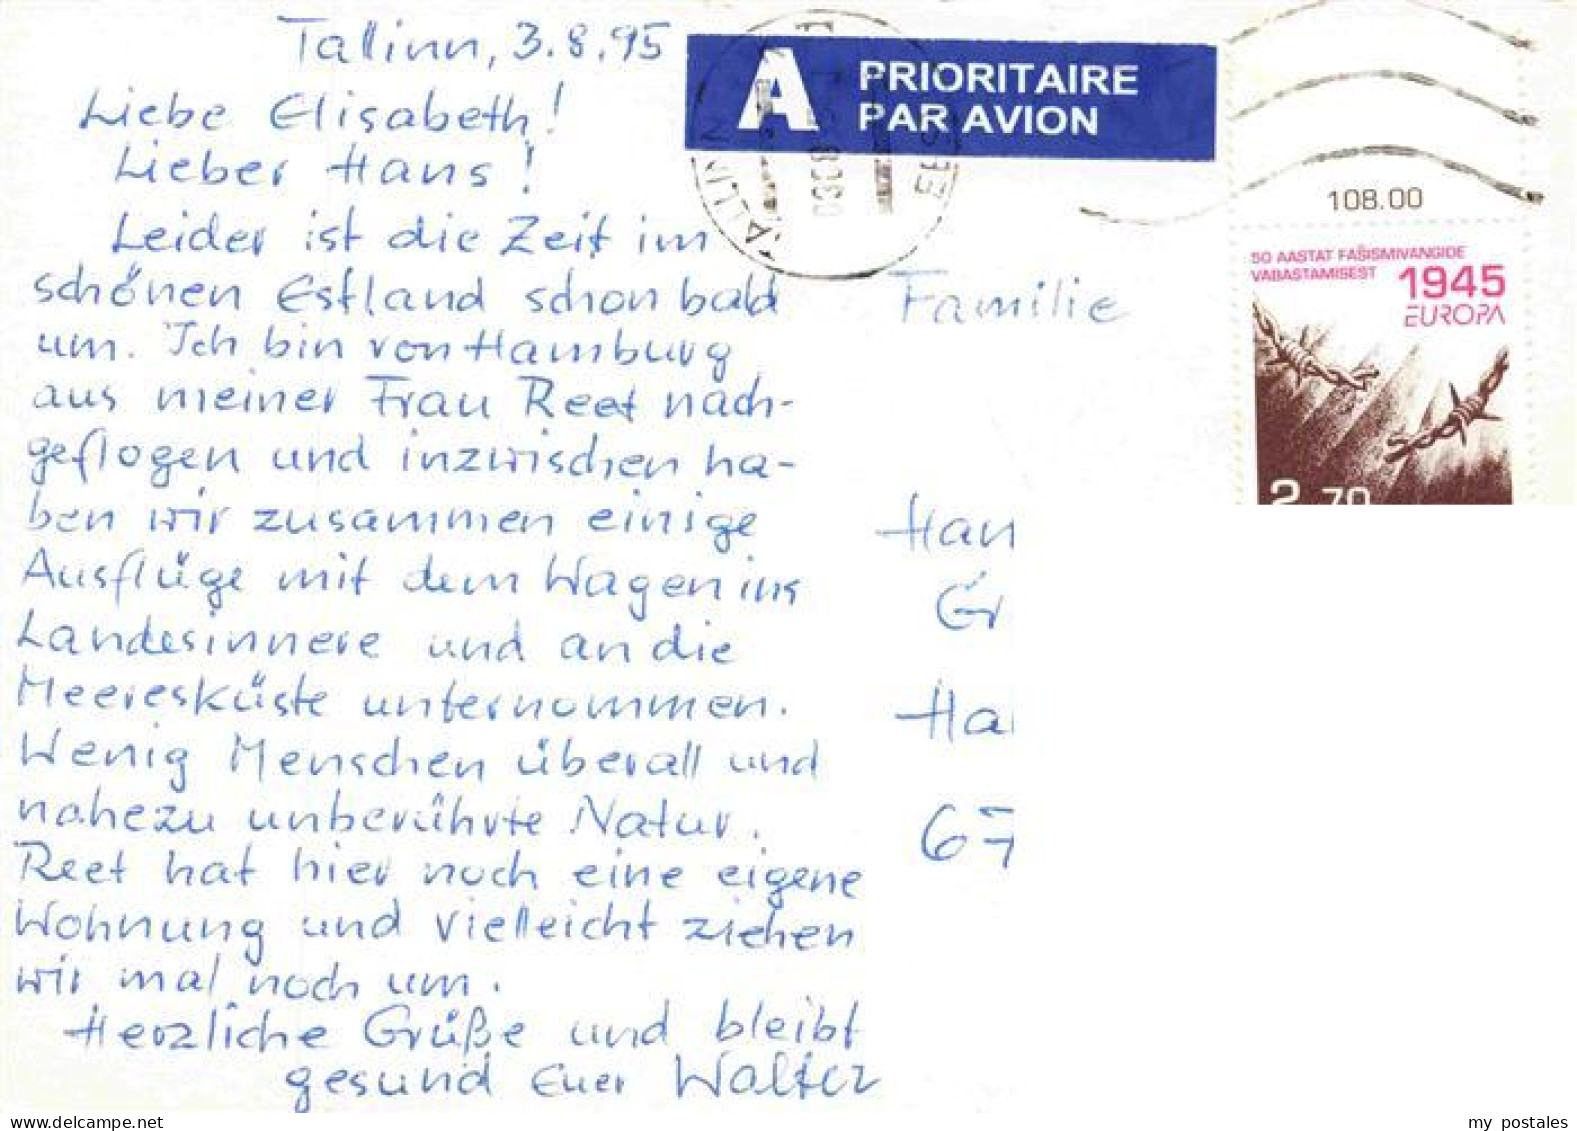 Tallinn, 3.8.95
Liebe Elisabeth!
Lieber Hans!
Leider ist die Zeit im
schönen Estland schon bald
um. Ich bin von Hamburg
aus meiner Frau Reet nach-
geflogen und inzwischen ha-
ben wir zusammen einige
Ausflüge mit dem Wagen ins
Landesinnere und an die
Meeresküste unternommen.
Wenig Menschen überall und
nahezu unberührte Natur.
Reet hat hier noch eine eigene
Wohnung und vielleicht ziehen
wir mal noch um.
Herzliche Grüße und bleibt
gesund Euer Walter
A PRIORITAIRE
PAR AVION
TALLINN
108.00
50 AASTAT FAŠISMIVANGIDE
VABASTAMISEST
1945
EUROPA
2.70
Familie
Han
Gr
Ha
67
my postales
delcampe.net